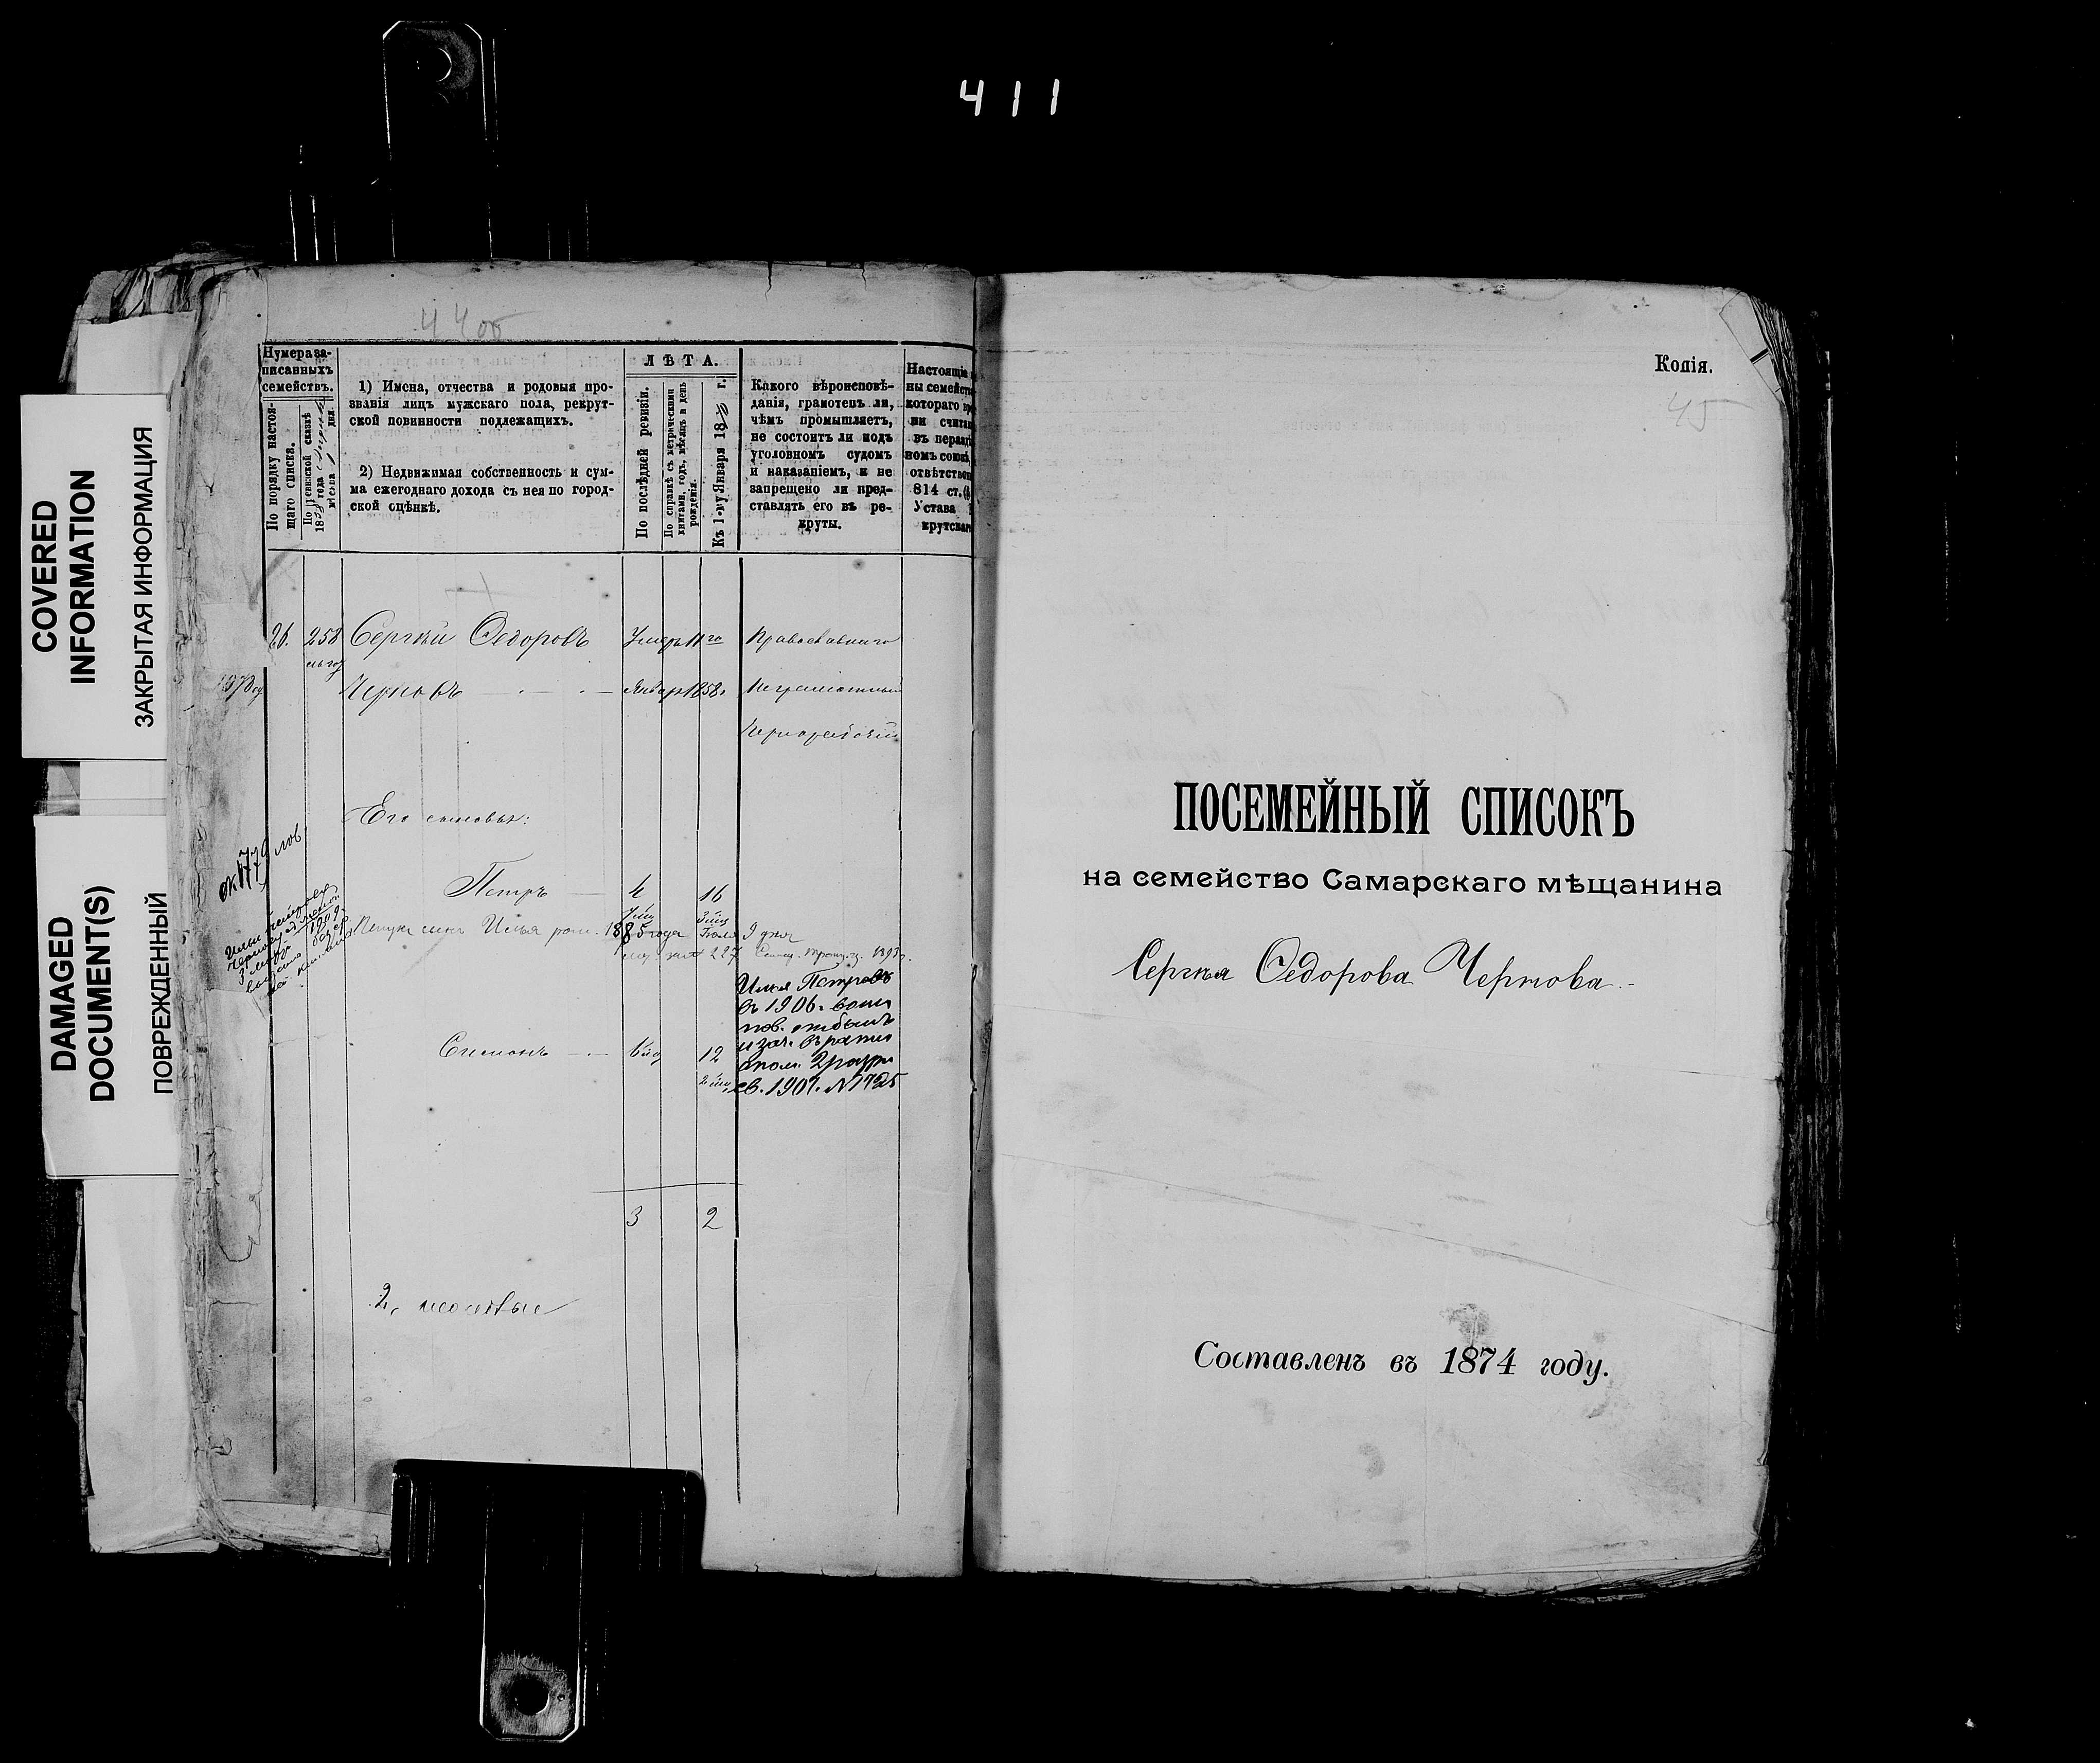 411
COVERED
INFORMATION
ЗАКРЫТАЯ ИНФОРМАЦИЯ
DAMAGED
DOCUMENT(S)
ПОВРЕЖДЕННЫЙ
44об
Нумера за-
писанныхъ
семействъ.
По порядку настоя-
щаго списка.
По ревизской сказкѣ
18 года
мѣсяца дня.
1) Имена, отчества и родовыя про-
званія лицъ мужскаго пола, рекрут-
ской повинности подлежащихъ.
2) Недвижимая собственность и сум-
ма ежегоднаго дохода съ нея по город-
ской оцѣнкѣ.
ЛѢТА.
По послѣдней ревизіи.
По справкѣ съ метрическими
книгами, годъ, мѣсяцъ и день
рожденія.
Къ 1-му Января 18 г.
Какого вѣроисповѣ-
данія, грамотенъ ли,
чѣмъ промышляетъ,
не состоитъ ли подъ
уголовномъ судомъ
и наказаніемъ, и не
запрещено ли пред-
ставлять его въ ре-
круты.
Настоящіе
ны семейст
котораго вр
ни счита
въ неразд
номъ союзѣ,
отвѣтстве
814 ст.
Устава
крутска
26. 258 Сергѣй Ѳедоровъ Умеръ 11го Православнаго
Черновъ Января 1858 г Неграмотный
Чернорабочій
Его сыновья:
Петръ 4 16
Петра сынъ Илья род. 1885 года Іюля 9 дня
Илья Петровъ
въ 1906 г. воин
пов. отбылъ
и зач. въ ратн
ополч. 2 разр
св. 1907. № 1725
Симонъ 12
3 2
2,
Копія.
45
ПОСЕМЕЙНЫЙ СПИСОКЪ
на семейство Самарскаго мѣщанина
Сергѣя Ѳедорова Чернова.
Составленъ въ 1874 году.